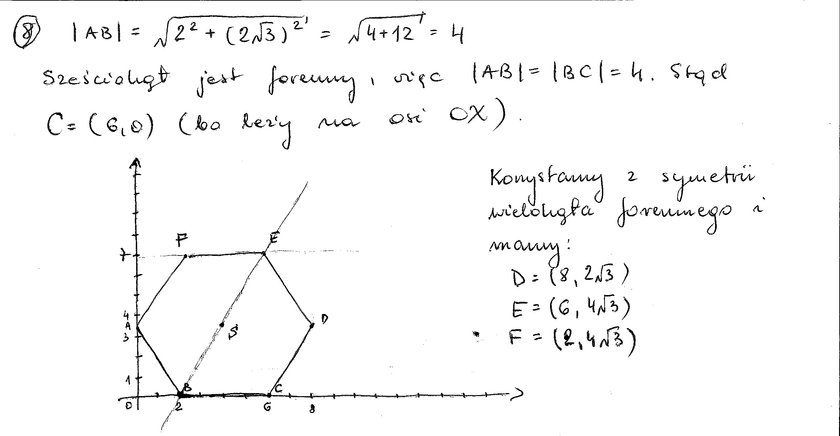 8 |AB| = √(2² + (2√3)²) = √(4+12) = 4
Sześciokąt jest foremny, więc |AB| = |BC| = 4. Stąd
C = (6,0) (bo leży na osi OX).
Korzystamy z symetrii
wielokąta foremnego i
mamy:
D = (8, 2√3)
E = (6, 4√3)
F = (2, 4√3)
F E
7
4
A S D
3
1
B C
0 2 6 8